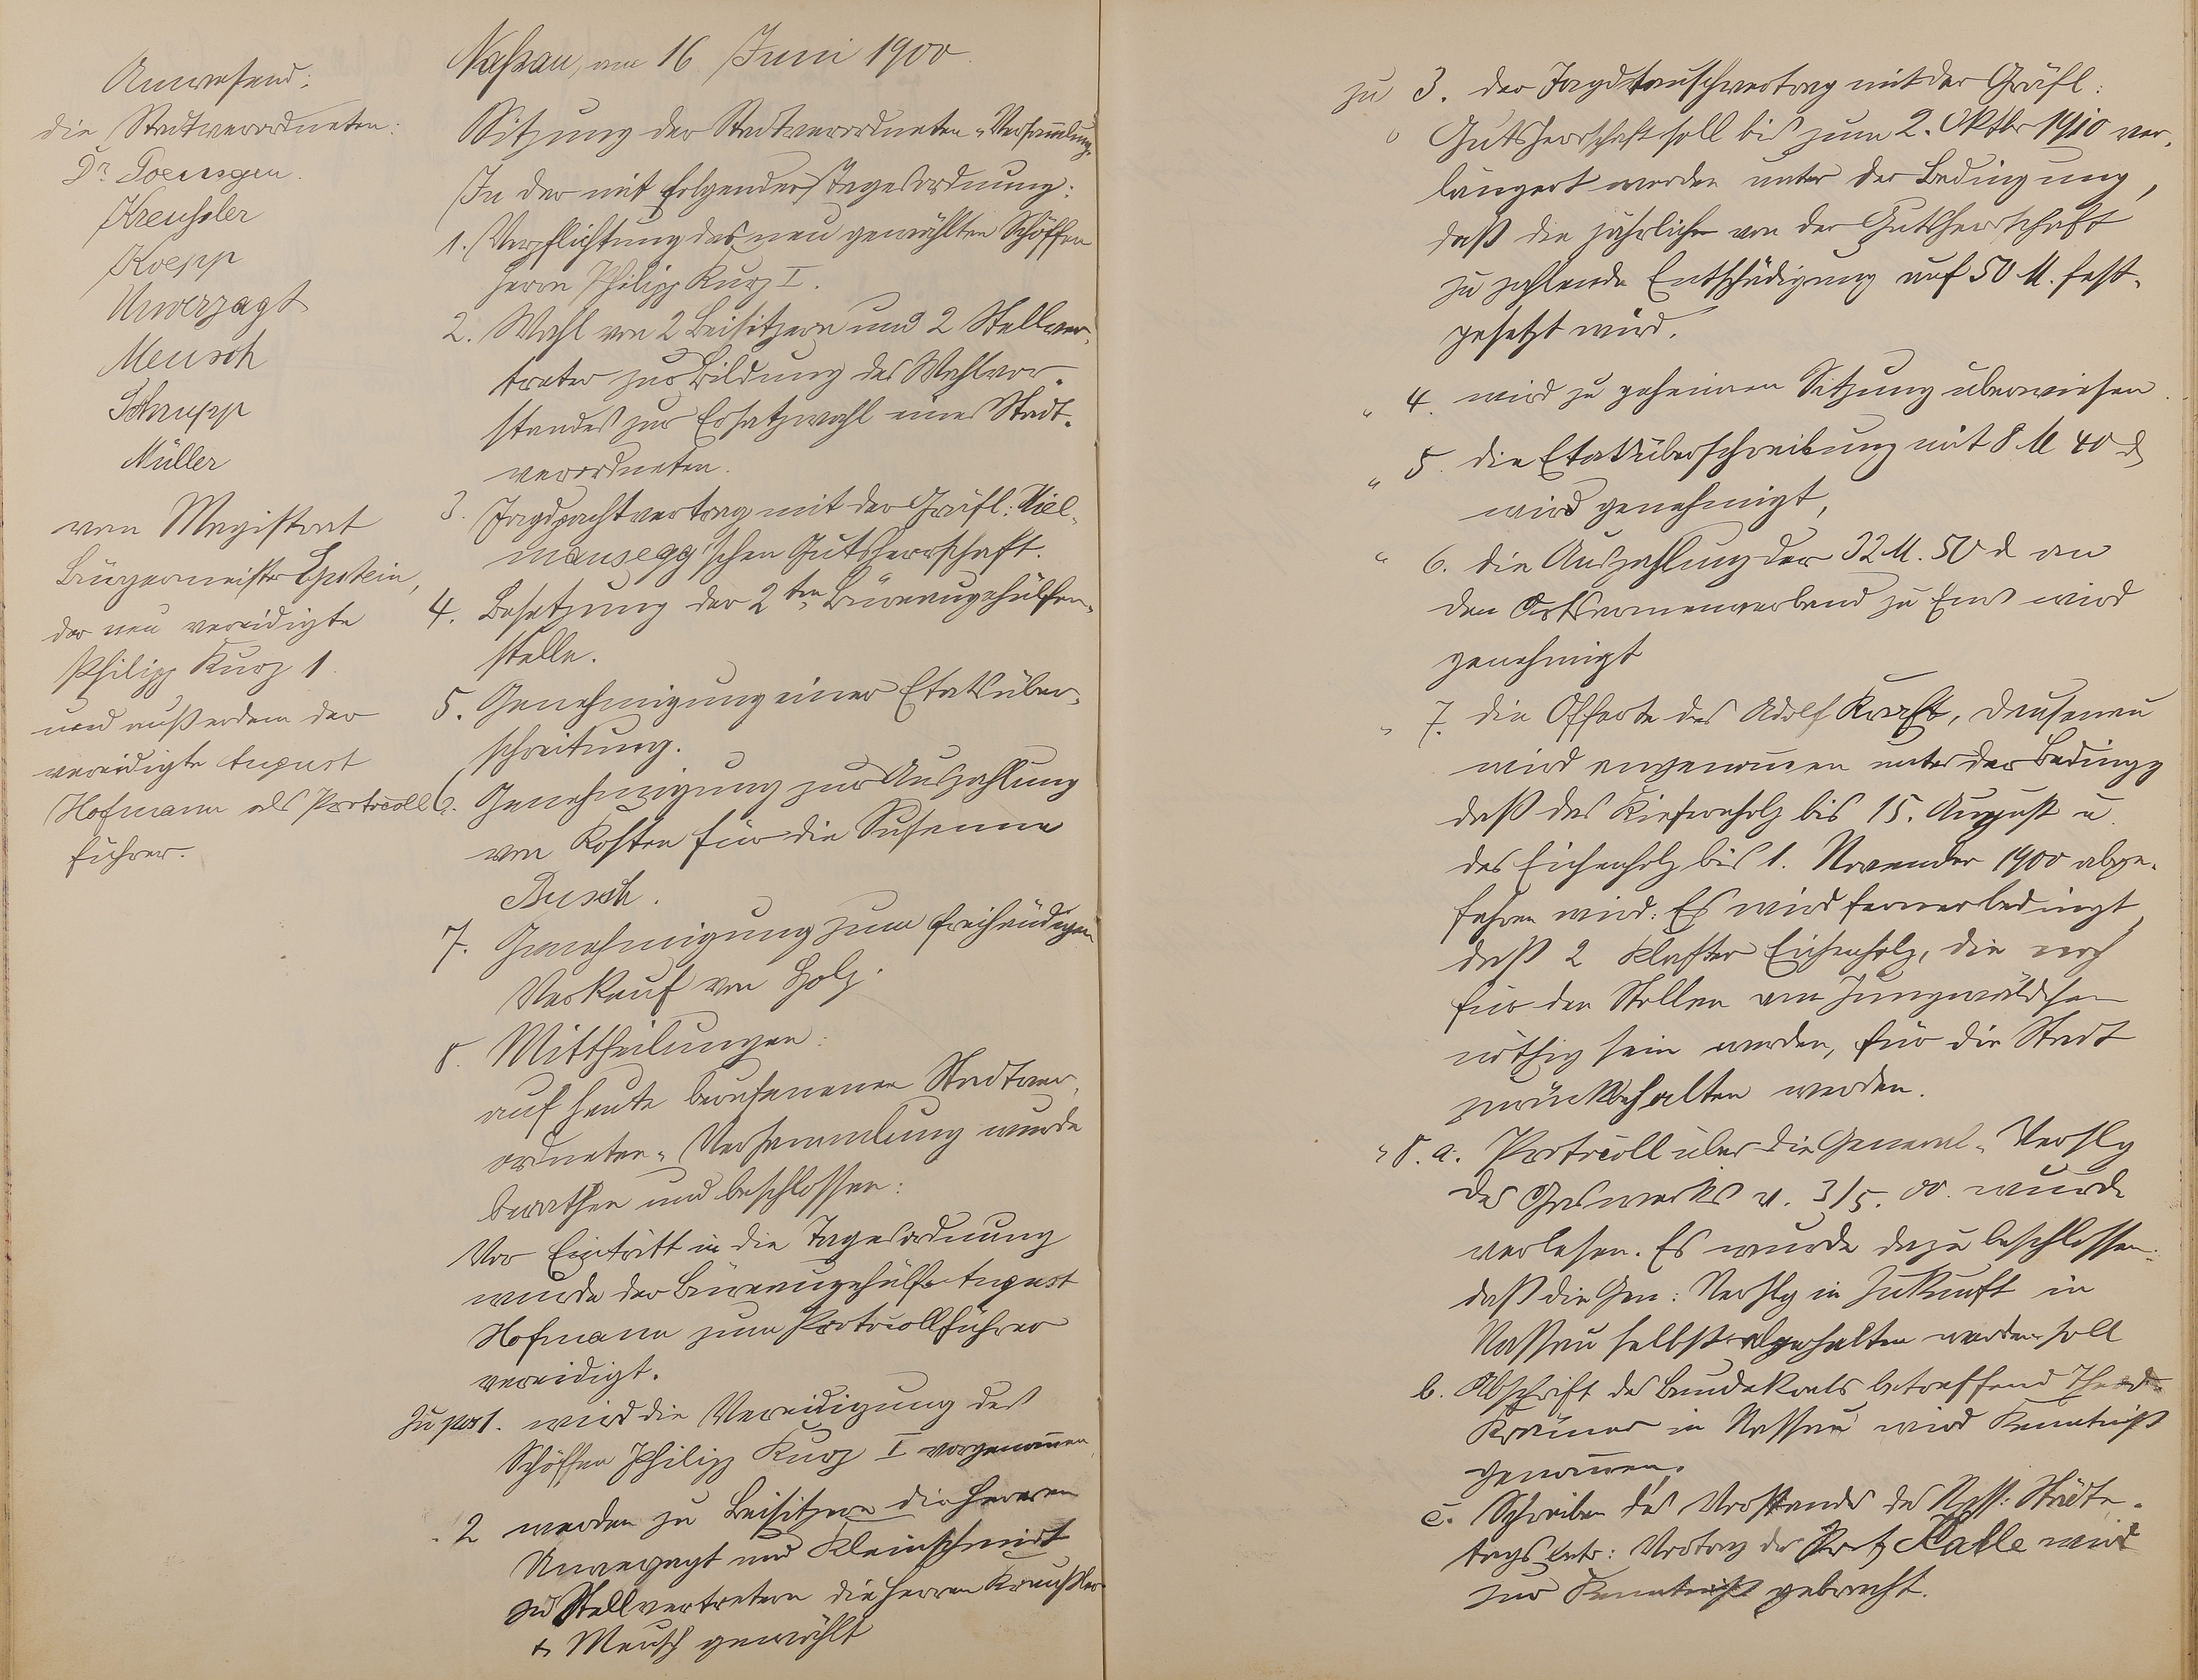 Anwesend:
die Stadtverordneten:
Dr. Poensgen.
Kreußler
Koepp
Unverzagt
Meusch
Schrupp
Müller
vom Magistrat
Bürgermeister Epstein,
der neu vereidigte
Philipp Kurz 1.
und außerdem der
vereidigte August
Hofmann als Protocoll
führer.
Naßau, am 16 Juni 1900.
Sitzung der Stadtverordneten-Versamlung.
In der mit folgender Tagesordnung:
1. Verpflichtung des neu gewählten Schöffen
Herrn Philipp Kurz I.
2. Wahl von 2 Beisitzern und 2 Stellver-
treter zur Bildung des Wahlvor-
standes zur Ersatzwahl eines Stadt-
verordneten.
3. Jagdpachtvertrag mit der Gräfl: Kiel-
mansegg'schen Gutsherrschaft.
4. Besetzung der 2ten Büreaugehülfen-
stelle.
5. Genehmigung einer Etatsüber-
schreitung.
6. Genehmigung zur Auszahlung
von Kosten für die Susanna
Busch.
7. Genehmigung zum freihändigen
Verkauf von Holz.
8. Mittheilungen:
auf heute berufenenen Stadtver-
ordneten-Versammlung wurde
berathen und beschlossen:
Vor Eintritt in die Tagesordnung
wurde der Büreaugehülfe August
Hofmann zum Protocollführer
vereidigt.
Zu pos 1. wird die Vereidigung des
Schöffen Philipp Kurz I vorgenomen
" 2 werden zu Beisitzern die Herren
Unverzagt und Kleinschmidt
zu Stellvertretern die Herren Kreußler
& Meusch gewählt
zu 3. der Jagdtauschvertrag mit der Gräfl:
Gutsherrschaft soll bis zum 2. Oktbr 1910 ver-
längert werden unter der Bedingung,
daß die jährlich von der Gutsherrschaft
zu zahlende Entschädigung auf 50 M. fest-
gesetzt wird.
" 4. wird zu geheimen Sitzung überwiesen.
" 5. die Etatsüberschreibung mit 8 M 40 d
wird genehmigt,
" 6. die Auszahlung der 32 M. 50 d an
den Ortsarmenverband zu Ems wird
genehmigt
" 7. die Offerte des Adolf Kraft, Dausenau
wird angenomen unter der Bedingg
daß das Kiefernholz bis 15. August u.
das Eichenholz bis 1. November 1900 abge-
fahren wird. Es wird ferner bedingt,
daß 2 Klafter Eichenholz, die noch
für den Stollen am Jungwäldchen
nöthig sein werden, für die Stadt
zurückbehalten werden.
" 8. a. Protocoll über die General-Verslg
des Gaswerks v. 3/5. 00. wurde
verlesen. Es wurde dazu beschlossen:
daß die Gen: Verslg in Zukunft in
Nassau selbst abgehalten werden soll
b. Abschrift des betreffend Theod.
Krämer in Nassau wird Kenntniß
genomen.
c. Schreiben des Vorstands des Nass: Städte-
tags betr: Vortrag des Prof Kalle wird
zur Kenntniß gebracht.